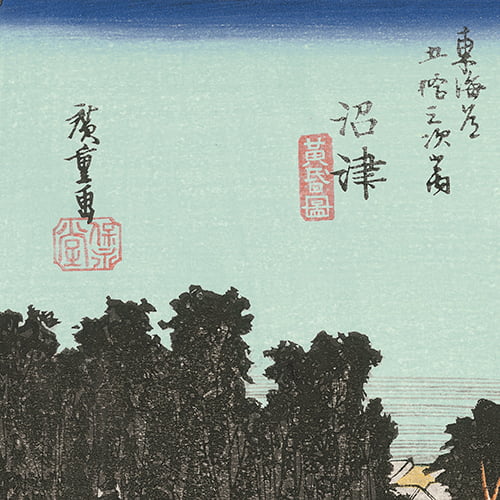 東海道
五拾三次之内
沼津
黄昏圖
廣重画
保永堂